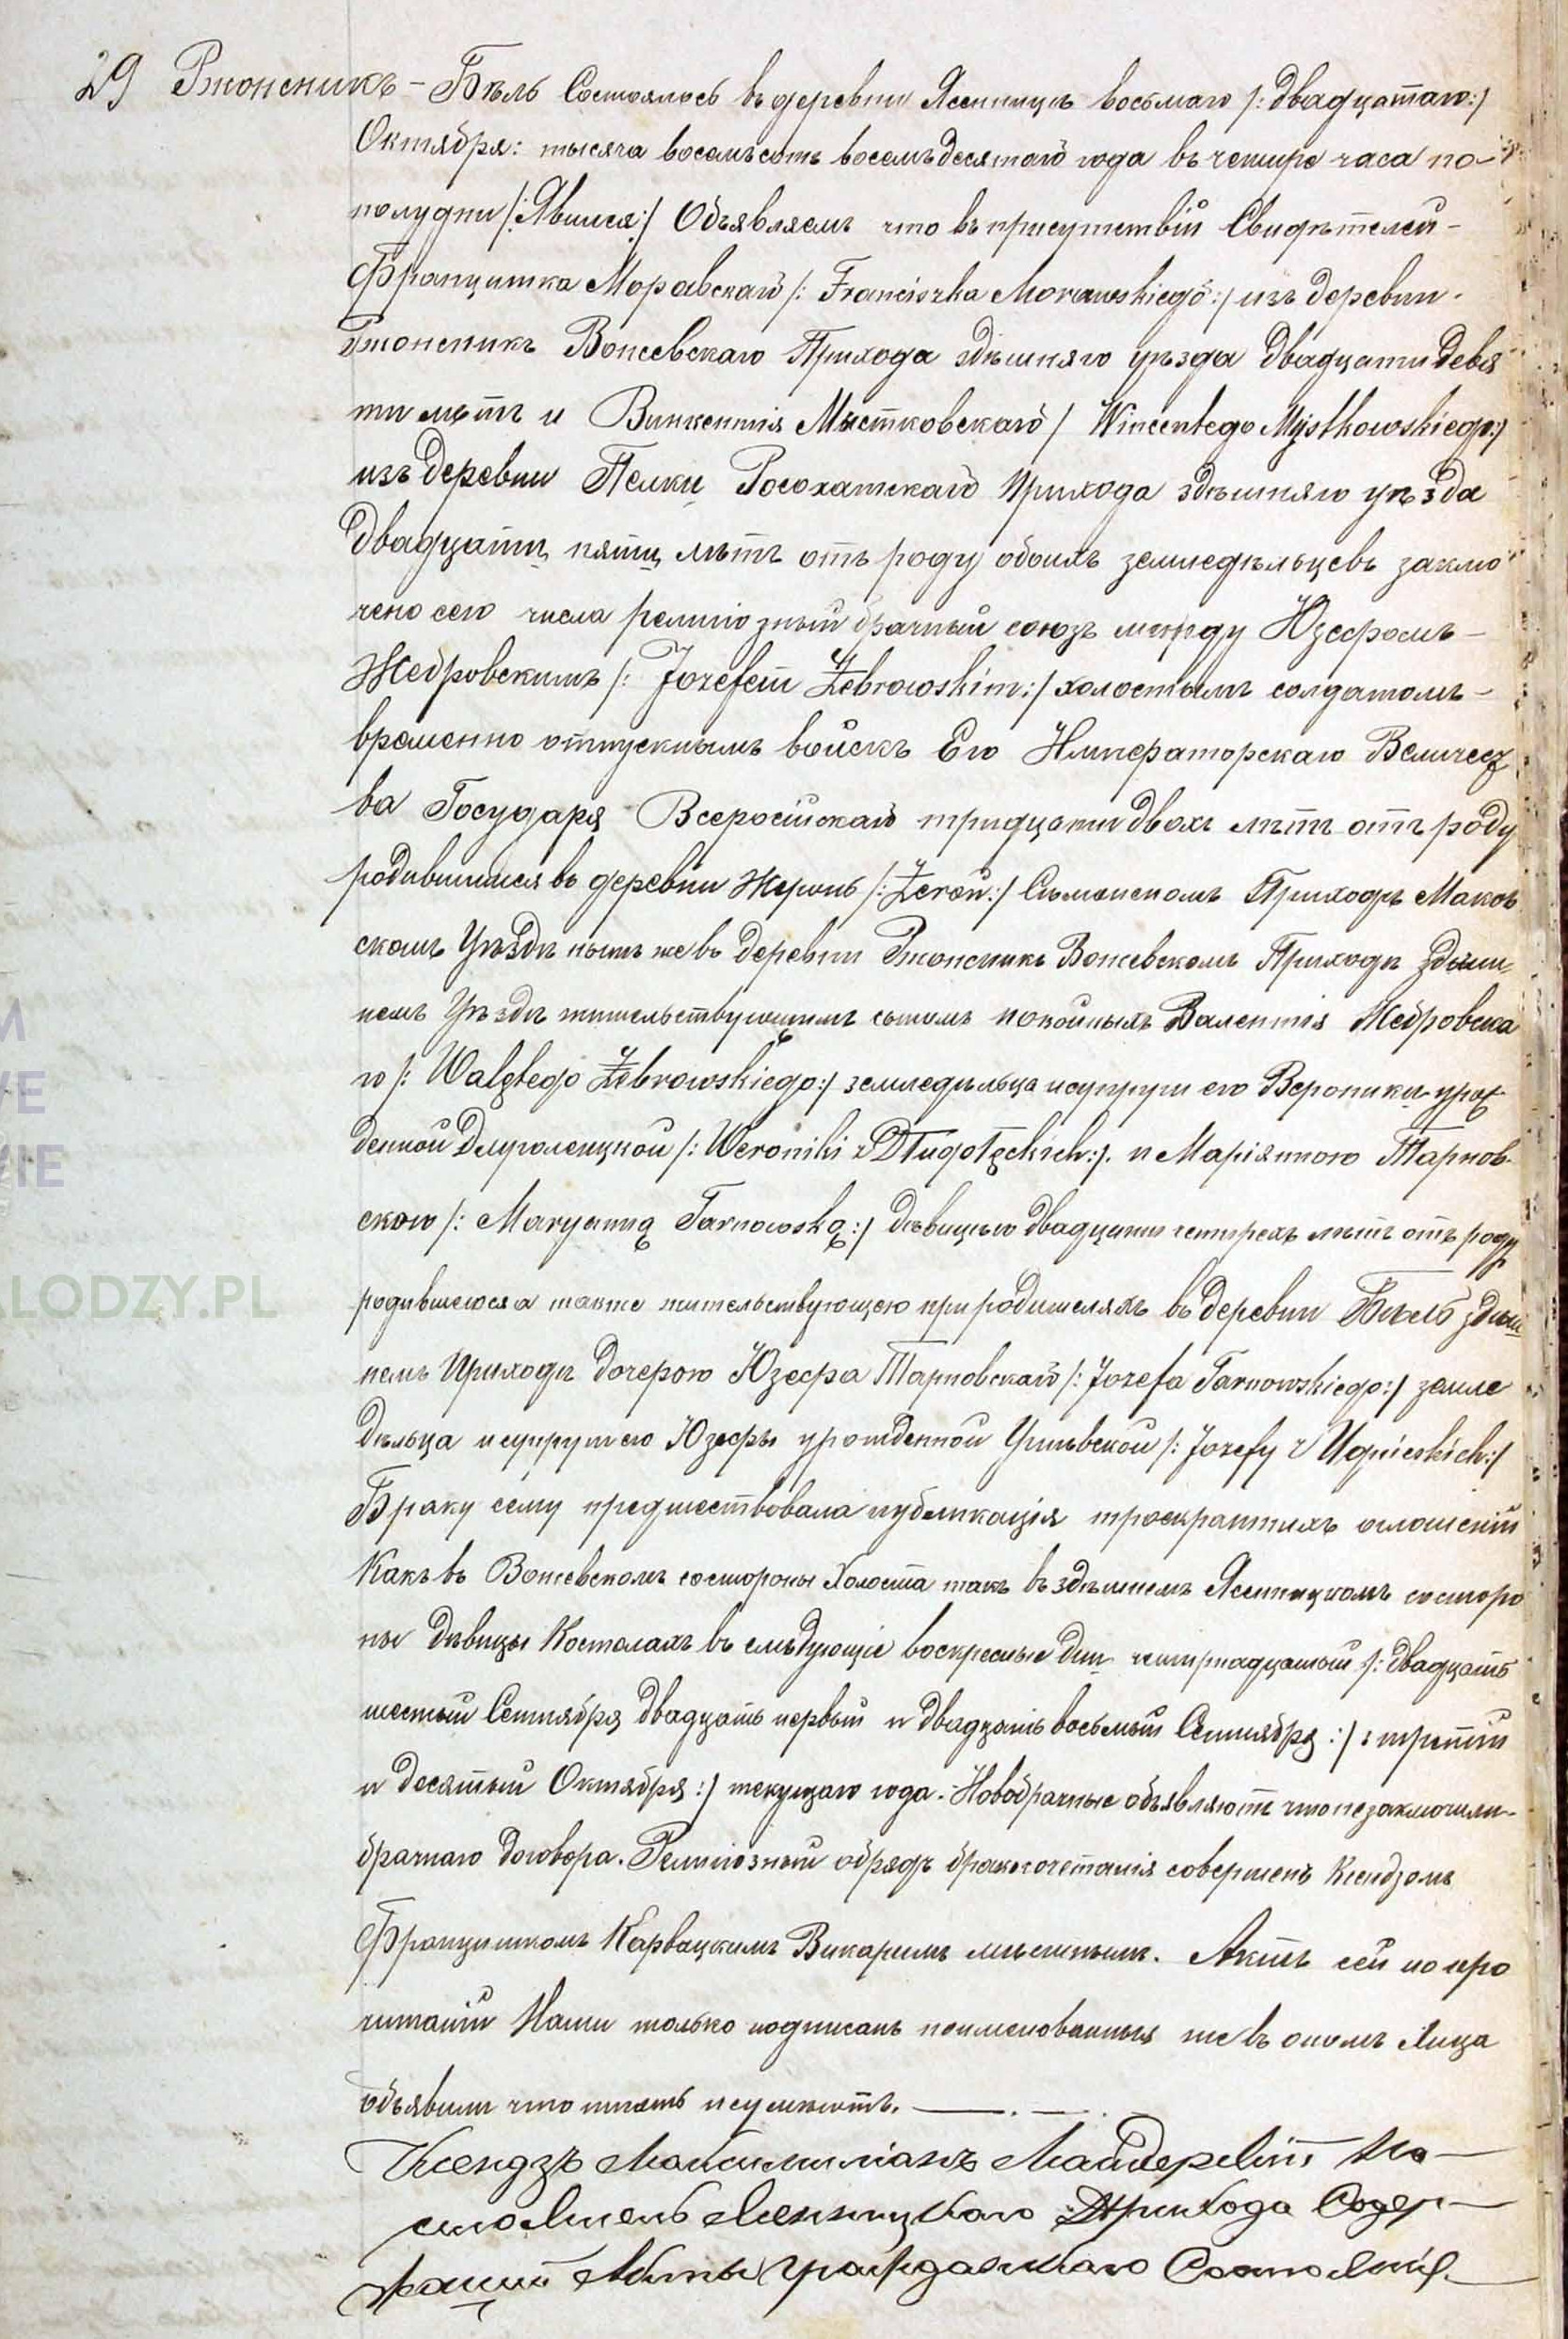 29 Ржонсникъ – Бѣль Состоялось въ деревни Ясенницѣ восьмаго /: двадцатаго:/
Октября: тысяча восемьсотъ восемьдесятаго года въ четыре часа по-
полудни /:Явился:/ Объявляемъ что въ присутствіи Свидѣтелей –
Францишка Моравскаго /: Franciszka Morawskiego :/ изъ деревни
Ржонсникъ Вонсевскаго Прихода здѣшняго уѣзда двадцати девя
ти лѣтъ и Винкентія Мыстковскаго / Wincentego Mystkowskiego:/
изъ деревни Пенки Росохатскаго Прихода здѣшняго уѣзда
двадцати пяти лѣтъ отъ роду обоихъ земледѣльцевъ заклю
чено сего числа религіозный брачный союзъ между Юзефомъ –
Жебровскимъ /: Jozefem Żebrowskim:/ холостымъ солдатомъ –
временно отпускнымъ войскъ Его Императорскаго Величест
ва Государя Всеросійскаго тридцати двохъ лѣтъ отъ роду
родившимся въ деревни Жеронь /: Żeroń:/ Приходѣ Маков
скомъ Уѣздѣ нынѣ же въ деревни Ржонсникъ Вонсевскомъ Приходѣ здѣш
немъ Уѣздѣ жительствующимъ сыномъ покойныхъ Валентія Жебровска
го /: Walętego Żebrowskiego:/ земледѣльца и супруги его Вероники урож
денной Длуголенцкой /: Weroniki z Długołęckich:/. и Маріянною Тарнов-
скою /: Maryanną Tarnowską:/ дѣвицею двадцати четырехъ лѣтъ отъ роду
родившеюся а также жительствующею при родителяхъ въ деревни Бѣль здѣш
немъ Приходѣ дочерою Юзефа Тарновскаго /: Jozefa Tarnowskiego:/ земле
дѣльца и супруги его Юзефы урожденной Угнѣвской /: Jozefy z Ugnieskich:/
Браку сему предшествовала публикація троекратныхъ оглошеній
Какъ въ Вонсевскомъ состороны Холоста такъ въ здѣшнемъ Ясенницкомъ состоро
ны дѣвицы Костолахъ въ слѣдующіе воскресные дни четырнадцатый /: двадцать
шестый Сентября двадцать первый и двадцать восьмый Сентября :/ : третій
и десятый Октября :/ текущаго года. Новобрачные объявляютъ что незаключили-
брачнаго договора. Религіозный обрядъ бракосочетанія совершенъ Ксендзомъ
Францишкомъ Карвацкимъ Викаримъ мѣстнымъ. Актъ сей по про
читаніи Нами только подписанъ поименованныя же въ ономъ Лица
объявили что писать неумѣютъ.
Ксендзъ Максимиліанъ На-
стоятель Ясенницкаго Прихода Содер-
жащій Акты Гражданскаго Состоянія.
LODZY.PL